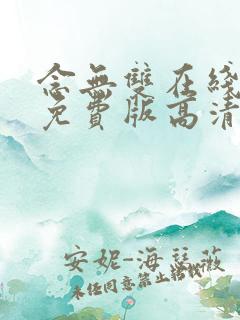 念無雙在綫
免費版高清
安妮-海瑟薇
未经同意禁止转载